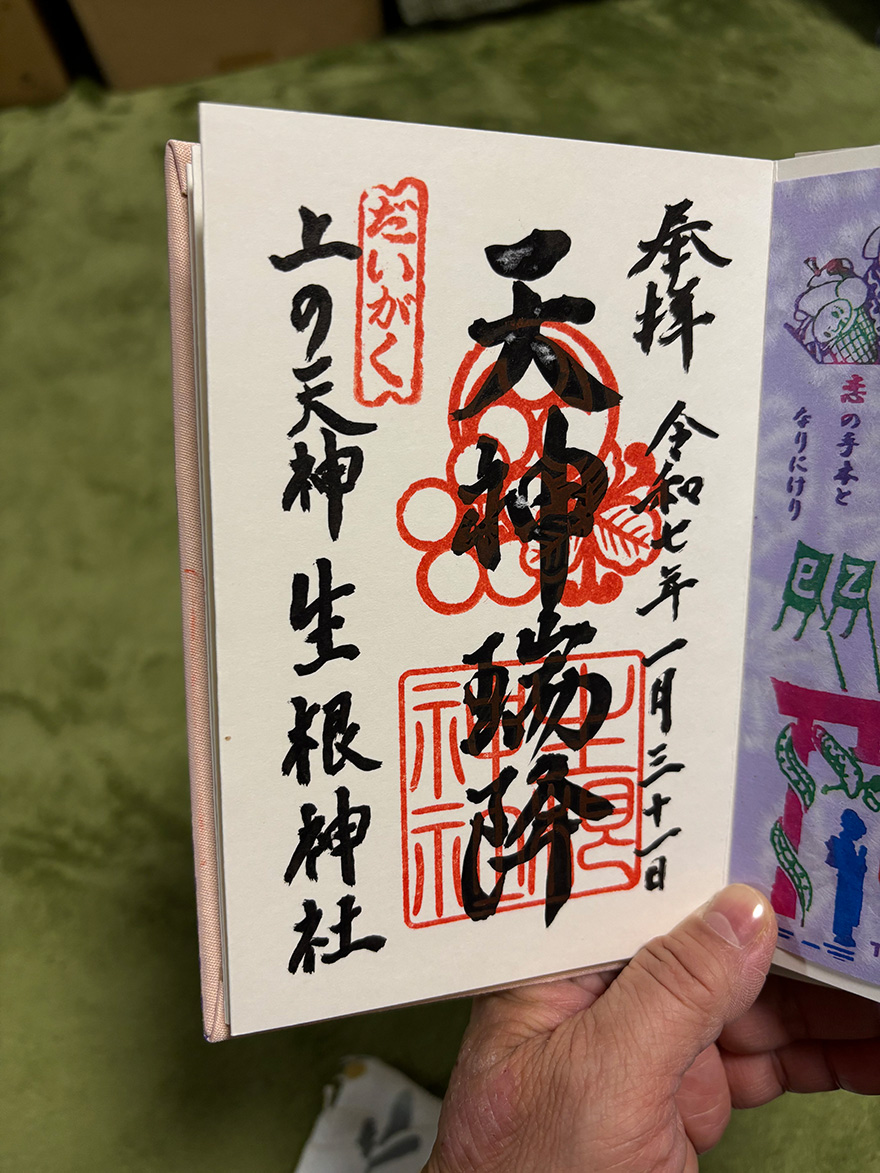 奉拝 令和七年一月三十一日
天神瑞降
だいがく
上の天神 生根神社
生根
神社
恋の手本と
なりにけり